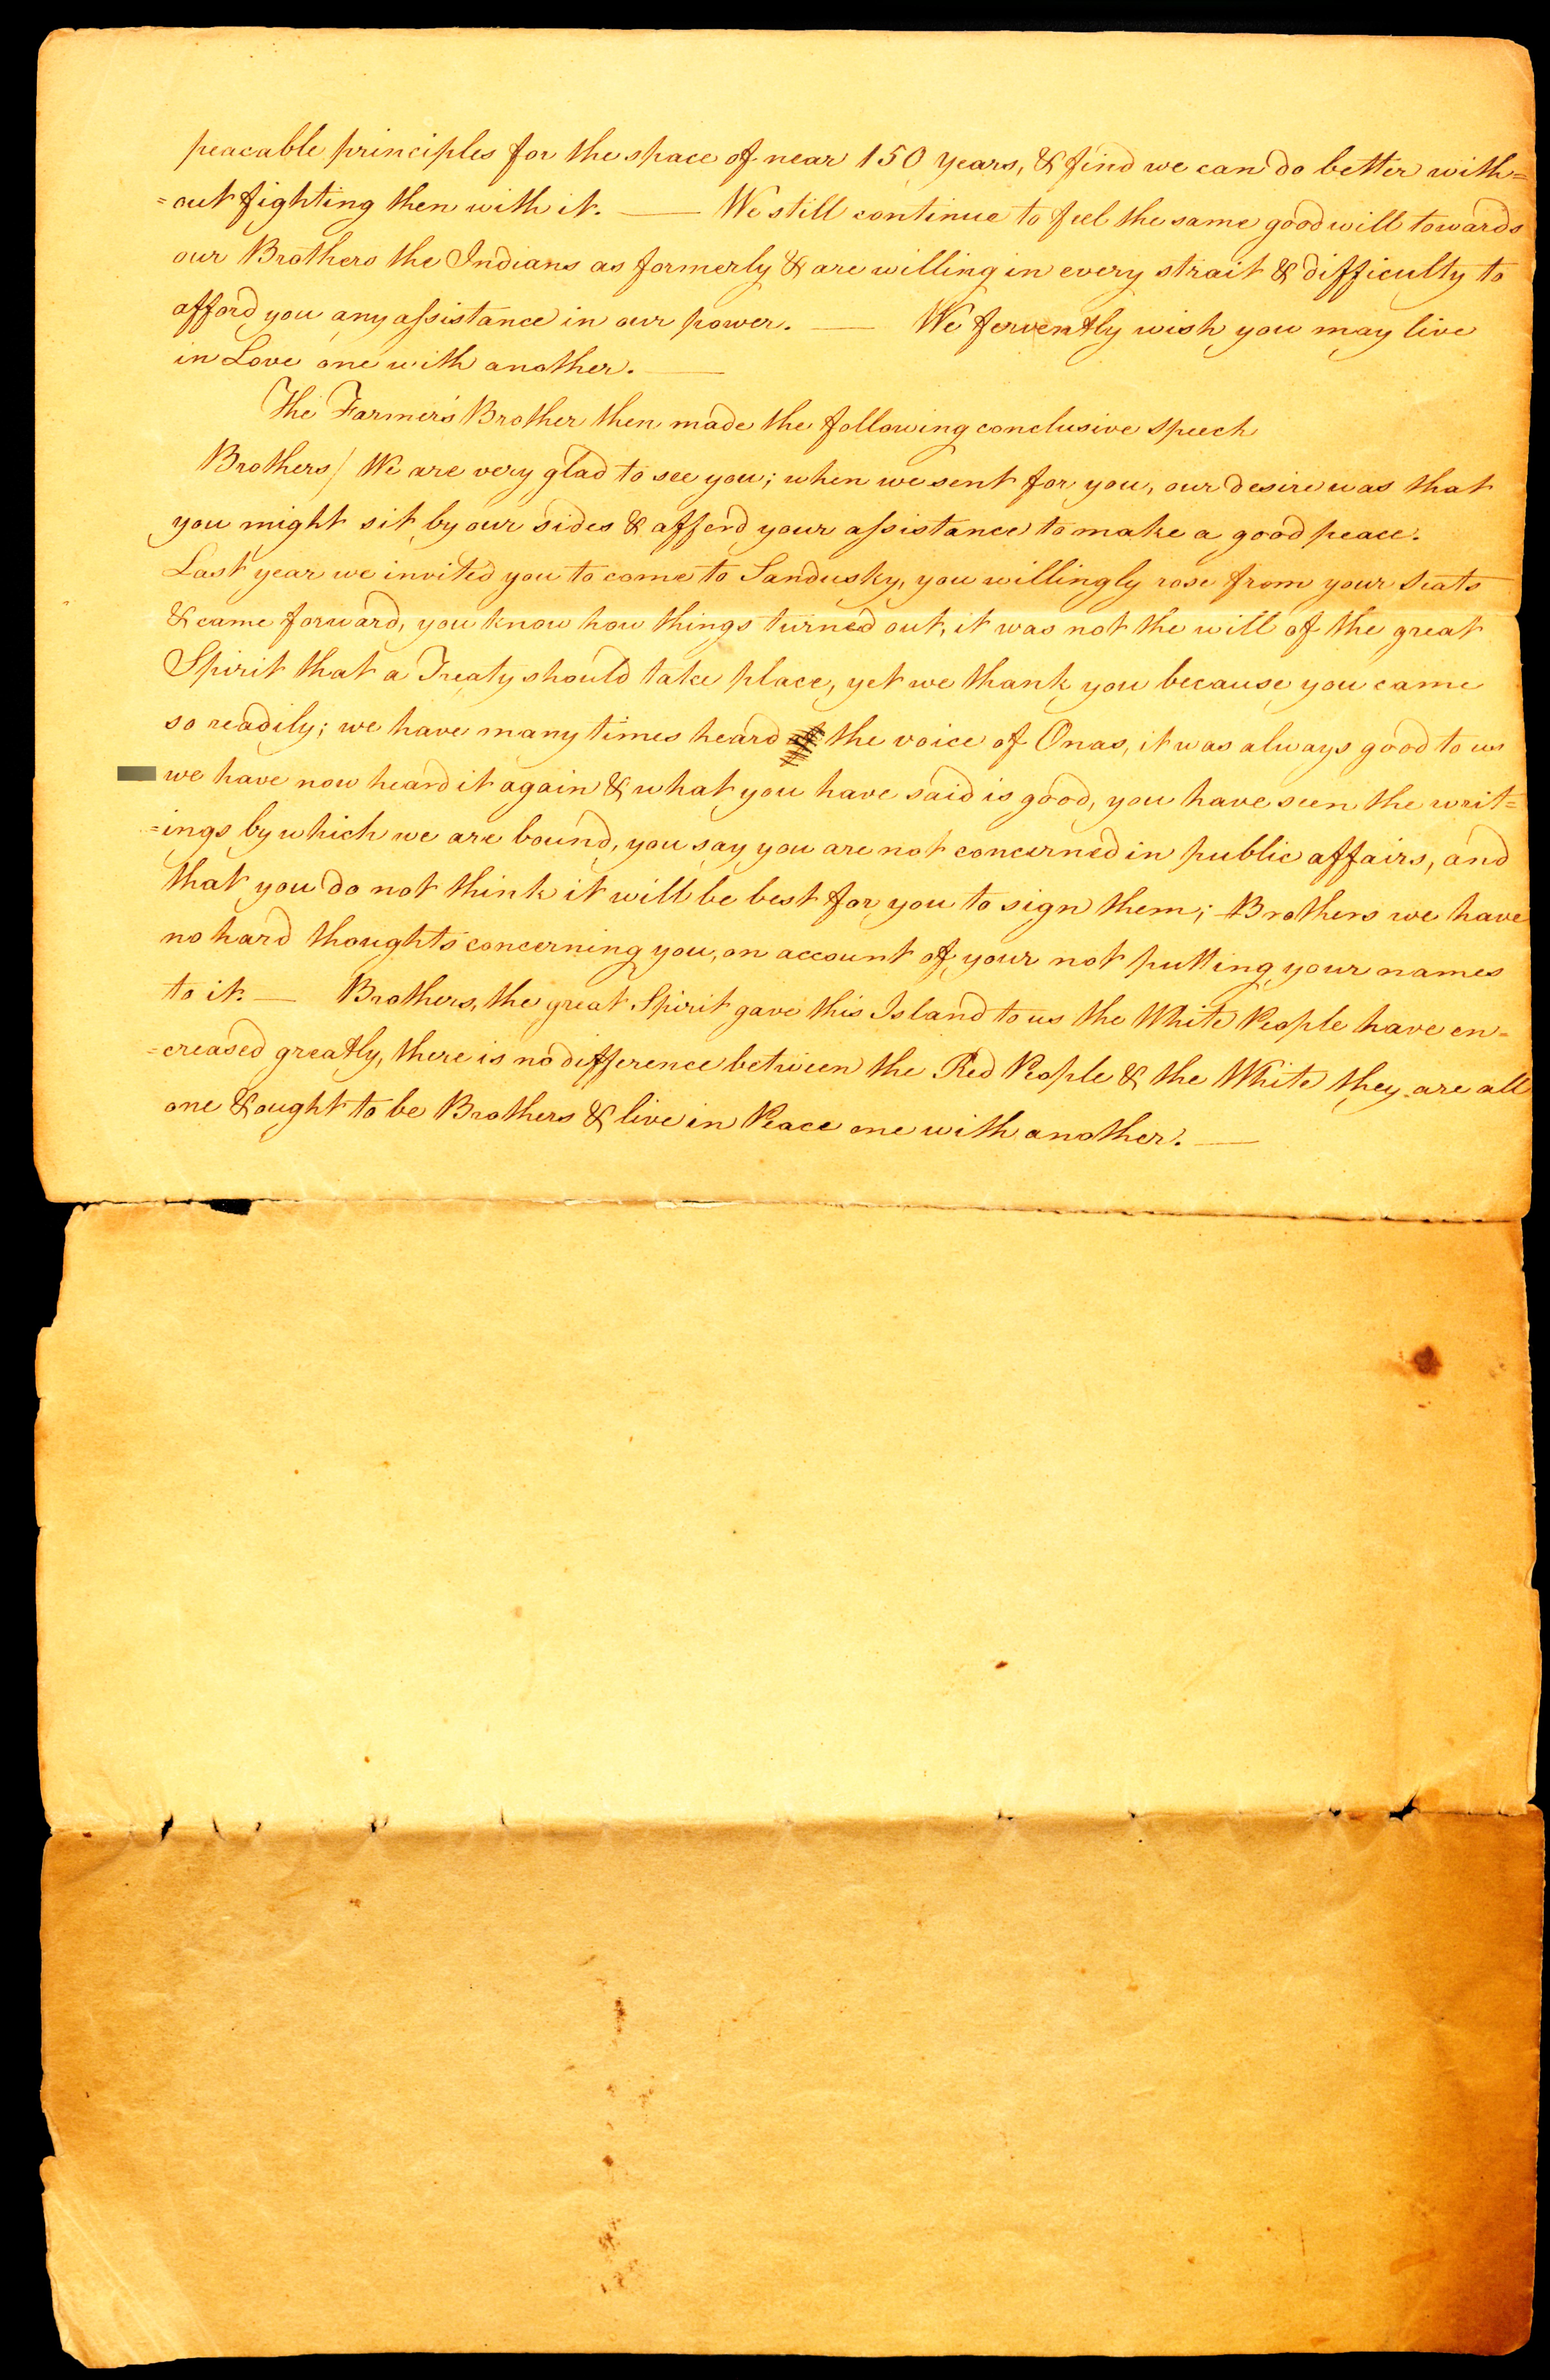 peacable principles for the space of near 150 years, & find we can do better with=
=out fighting then with it. — We still continue to feel the same good will towards
our Brothers the Indians as formerly & are willing in every strait & difficulty to
afford you any assistance in our power. — We fervently wish you may live
in Love one with another. —
The Farmer's Brother then made the following conclusive speech
Brothers/ We are very glad to see you; when we sent for you, our desire was that
you might sit by our sides & afford your assistance to make a good peace.
Last year we invited you to come to Sandusky, you willingly rose from your seats
& came forward, you know how things turned out, it was not the will of the great
Spirit that a Treaty should take place, yet we thank you because you came
so readily; we have many times heard the voice of Onas, it was always good to us
we have now heard it again & what you have said is good, you have seen the writ=
=ings by which we are bound, you say you are not concerned in public affairs, and
that you do not think it will be best for you to sign them; Brothers we have
no hard thoughts concerning you, on account of your not putting your names
to it. — Brothers, the great Spirit gave this Island to us the White People have en=
=creased greatly, there is no difference between the Red People & the White they are all
one & ought to be Brothers & live in Peace one with another. —